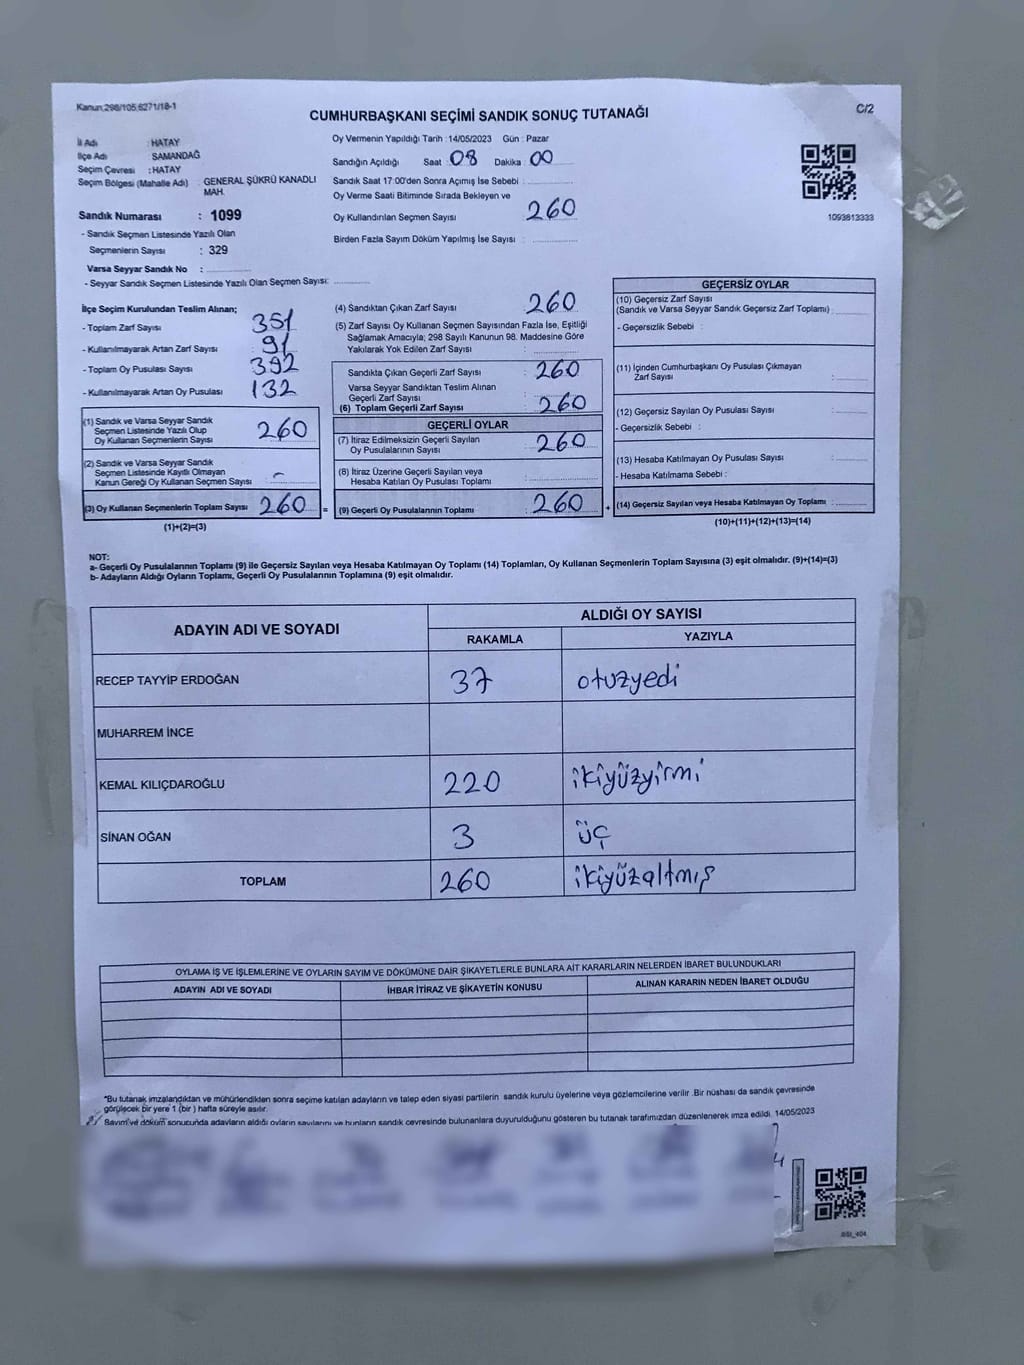 Kanun:298/105;6271/18-1
C/2
CUMHURBAŞKANI SEÇİMİ SANDIK SONUÇ TUTANAĞI
İl Adı : HATAY
İlçe Adı : SAMANDAĞ
Seçim Çevresi : HATAY
Seçim Bölgesi (Mahalle Adı) : GENERAL ŞÜKRÜ KANADLI MAH.
Sandık Numarası : 1099
- Sandık Seçmen Listesinde Yazılı Olan
Seçmenlerin Sayısı : 329
Varsa Seyyar Sandık No :
- Seyyar Sandık Seçmen Listesinde Yazılı Olan Seçmen Sayısı:
Oy Vermenin Yapıldığı Tarih : 14/05/2023 Gün : Pazar
Sandığın Açıldığı Saat : 08 Dakika : 00
Sandık Saat 17:00'den Sonra Açımış İse Sebebi :
Oy Verme Saati Bitiminde Sırada Bekleyen ve
Oy Kullandırılan Seçmen Sayısı : 260
Birden Fazla Sayım Döküm Yapılmış İse Sayısı :
1093813333
İlçe Seçim Kurulundan Teslim Alınan;
- Toplam Zarf Sayısı : 351
- Kullanılmayarak Artan Zarf Sayısı : 91
- Toplam Oy Pusulası Sayısı : 392
- Kullanılmayarak Artan Oy Pusulası : 132
(1) Sandık ve Varsa Seyyar Sandık
Seçmen Listesinde Yazılı Olup
Oy Kullanan Seçmenlerin Sayısı : 260
(2) Sandık ve Varsa Seyyar Sandık
Seçmen Listesinde Kayıtlı Olmayan
Kanun Gereği Oy Kullanan Seçmen Sayısı : -
(3) Oy Kullanan Seçmenlerin Toplam Sayısı : 260 =
(1)+(2)=(3)
(4) Sandıktan Çıkan Zarf Sayısı : 260
(5) Zarf Sayısı Oy Kullanan Seçmen Sayısından Fazla İse, Eşitliği
Sağlamak Amacıyla; 298 Sayılı Kanunun 98. Maddesine Göre
Yakılarak Yok Edilen Zarf Sayısı :
Sandıkta Çıkan Geçerli Zarf Sayısı : 260
Varsa Seyyar Sandıktan Teslim Alınan
Geçerli Zarf Sayısı :
(6) Toplam Geçerli Zarf Sayısı : 260
GEÇERLİ OYLAR
(7) İtiraz Edilmeksizin Geçerli Sayılan
Oy Pusulalarının Sayısı : 260
(8) İtiraz Üzerine Geçerli Sayılan veya
Hesaba Katılan Oy Pusulası Toplamı :
(9) Geçerli Oy Pusulalarının Toplamı : 260 +
GEÇERSİZ OYLAR
(10) Geçersiz Zarf Sayısı
(Sandık ve Varsa Seyyar Sandık Geçersiz Zarf Toplamı) :
- Geçersizlik Sebebi :
(11) İçinden Cumhurbaşkanı Oy Pusulası Çıkmayan
Zarf Sayısı :
(12) Geçersiz Sayılan Oy Pusulası Sayısı :
- Geçersizlik Sebebi :
(13) Hesaba Katılmayan Oy Pusulası Sayısı :
- Hesaba Katılmama Sebebi :
(14) Geçersiz Sayılan veya Hesaba Katılmayan Oy Toplamı :
(10)+(11)+(12)+(13)=(14)
NOT:
a- Geçerli Oy Pusulalarının Toplamı (9) ile Geçersiz Sayılan veya Hesaba Katılmayan Oy Toplamı (14) Toplamları, Oy Kullanan Seçmenlerin Toplam Sayısına (3) eşit olmalıdır. (9)+(14)=(3)
b- Adayların Aldığı Oyların Toplamı, Geçerli Oy Pusulalarının Toplamına (9) eşit olmalıdır.
ADAYIN ADI VE SOYADI
ALDIĞI OY SAYISI
RAKAMLA YAZIYLA
RECEP TAYYİP ERDOĞAN 37 otuzyedi
MUHARREM İNCE
KEMAL KILIÇDAROĞLU 220 ikiyüzyirmi
SİNAN OĞAN 3 üç
TOPLAM 260 ikiyüzaltmış
OYLAMA İŞ VE İŞLEMLERİNE VE OYLARIN SAYIM VE DÖKÜMÜNE DAİR ŞİKAYETLERLE BUNLARA AİT KARARLARIN NELERDEN İBARET BULUNDUKLARI
ADAYIN ADI VE SOYADI İHBAR İTİRAZ VE ŞİKAYETİN KONUSU ALINAN KARARIN NEDEN İBARET OLDUĞU
*Bu tutanak imzalandıktan ve mühürlendikten sonra seçime katılan adayların ve talep eden siyasi partilerin sandık kurulu üyelerine veya gözlemcilerine verilir .Bir nüshası da sandık çevresinde
görülecek bir yere 1 (bir ) hafta süreyle asılır.
Sayım ve döküm sonucunda adayların aldığı oyların sayılarını ve bunların sandık çevresinde bulunanlara duyurulduğunu gösteren bu tutanak tarafımızdan düzenlenerek imza edildi. 14/05/2023